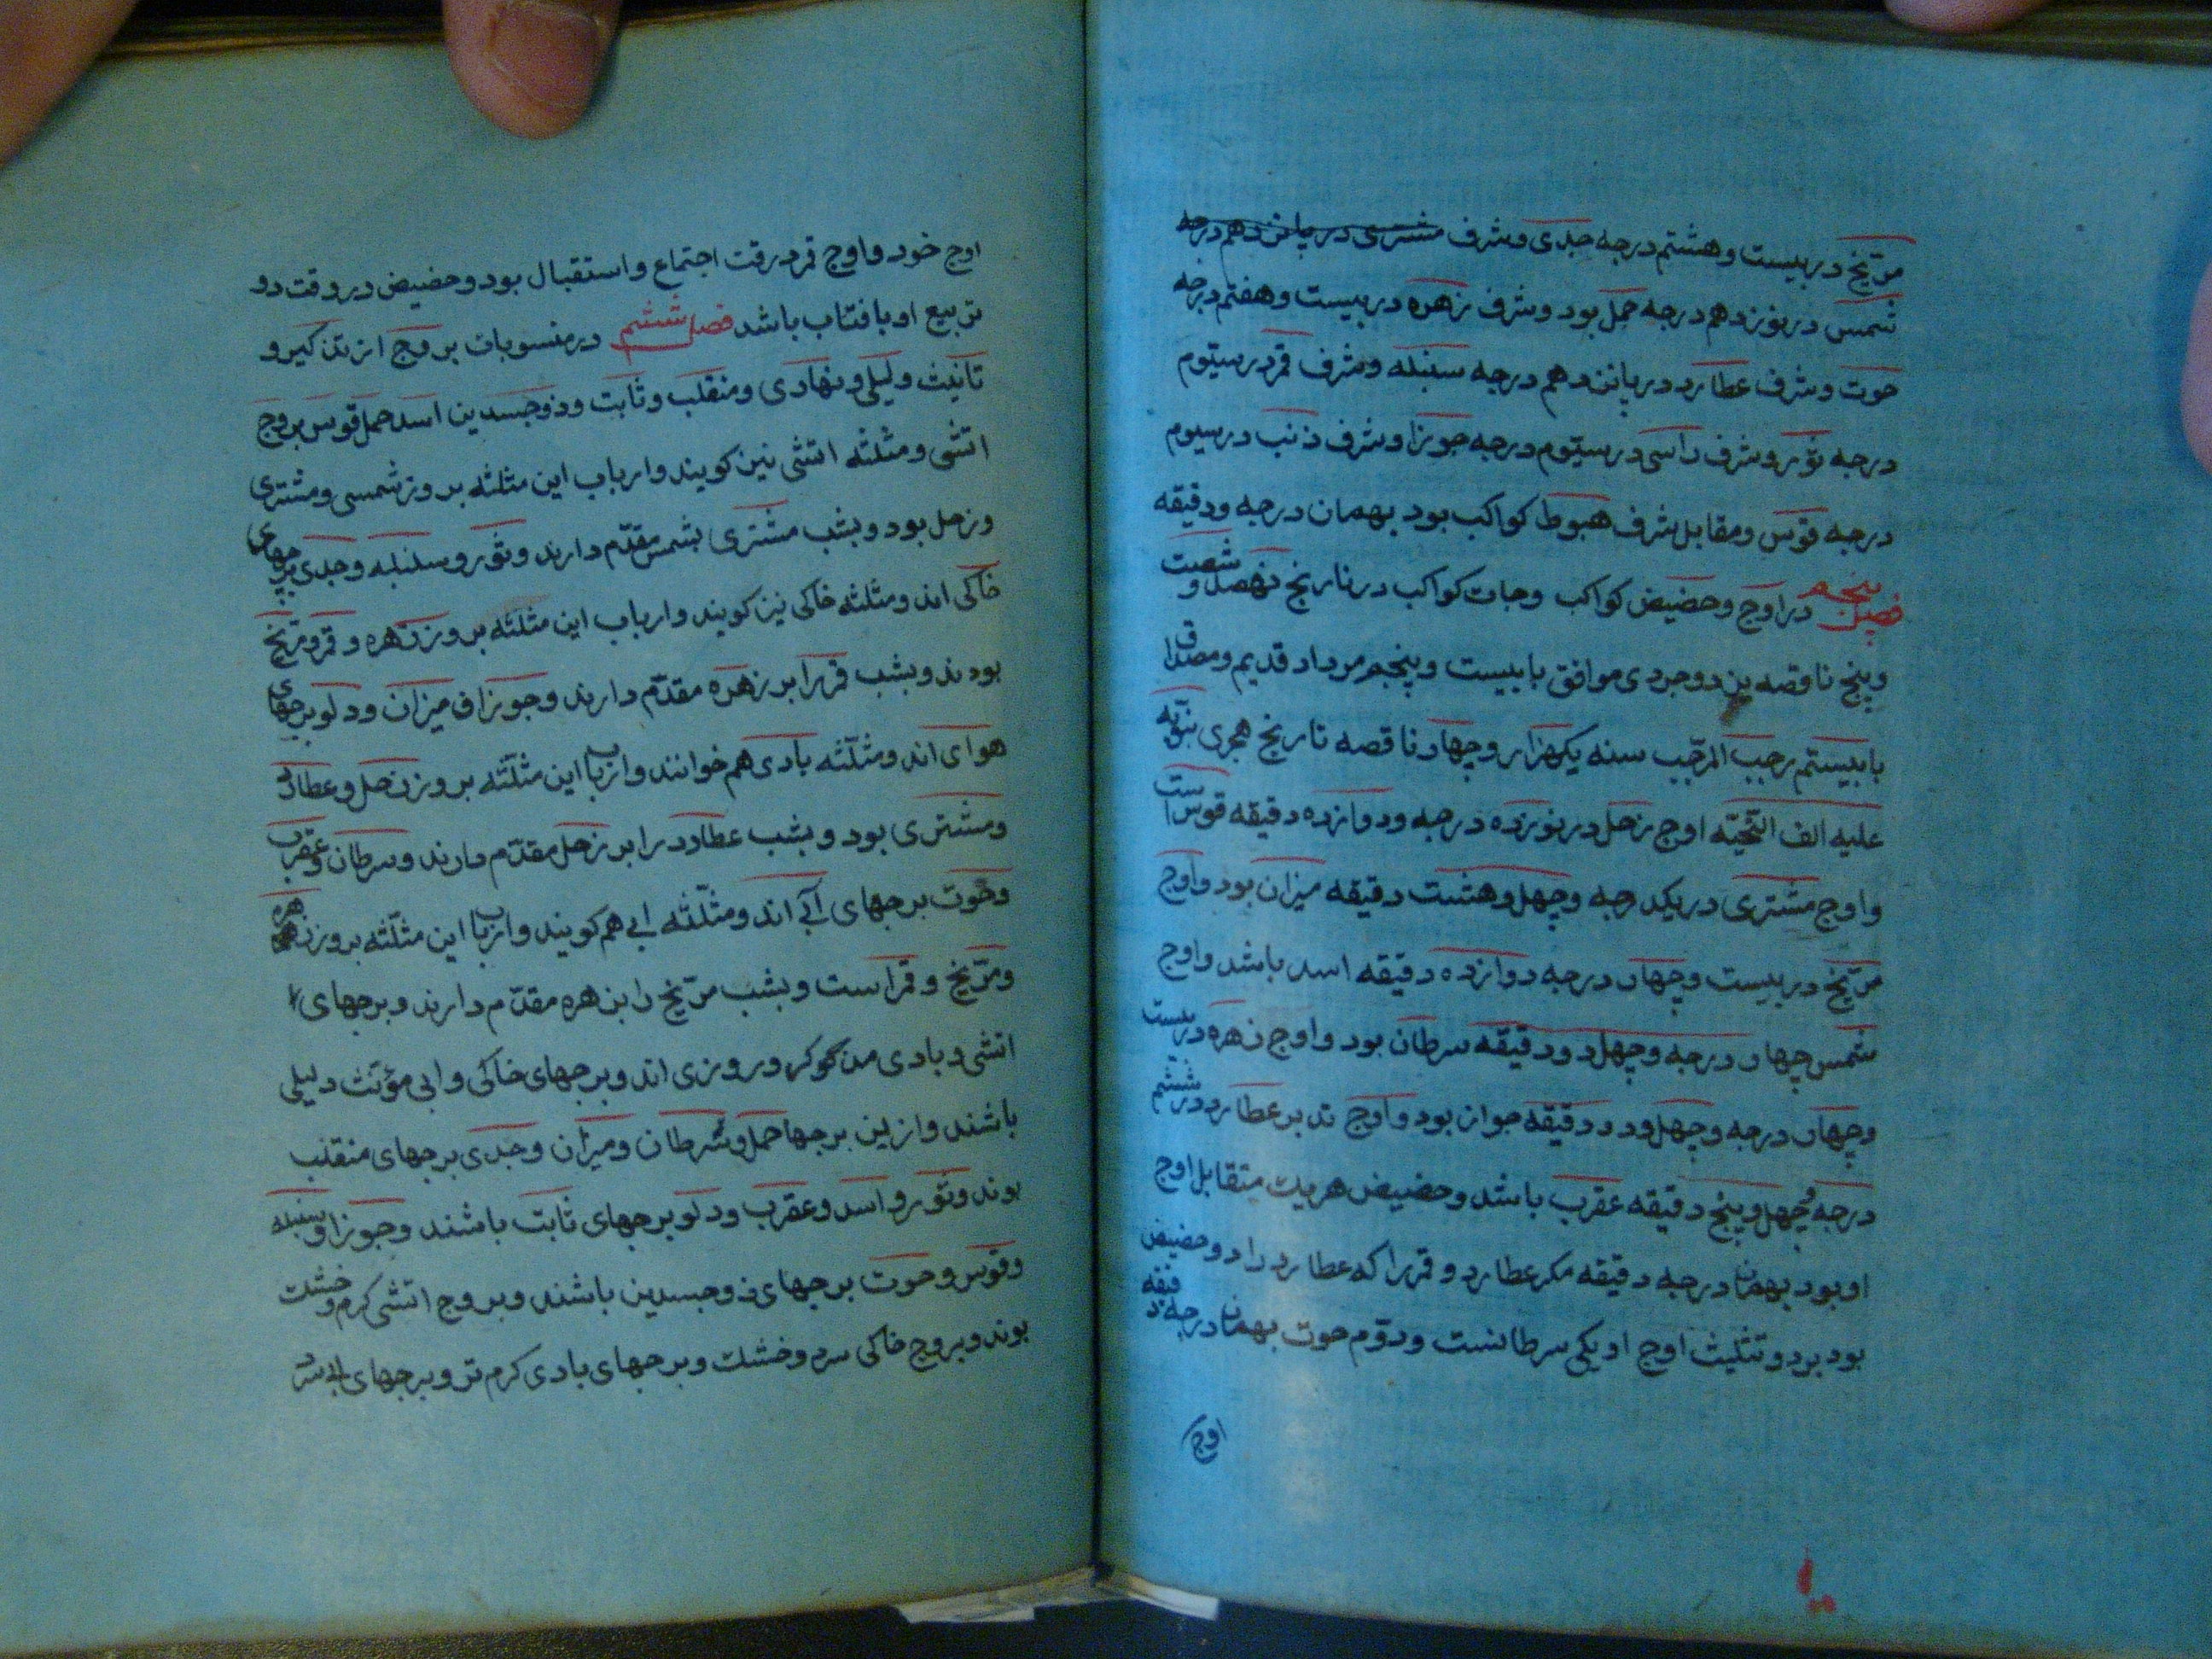 مریخ در بیست و هشتم درجه جدی و شرف مشتری در پانزدهم درجه
شمس در نوزدهم درجه حمل بود و شرف زهره در بیست و هفتم درجه
حوت و شرف عطارد در پانزدهم درجه سنبله و شرف قمر در سیتوم
درجه ثور و شرف راسی در سیتوم درجه جوزا و شرف ذنب در سیوم
درجه قوس و مقابل شرف هبوط کواکب بود بهمان درجه و دقیقه
فصل پنجم در اوج و حضیض کواکب و جات کواکب در تاریخ نهصد و شصت
و پنج ناقصه یزدوجردی موافق با بیست و پنجم مرداد قدیم و مصداق
با بیستم رجب المرجب سنه یکهزار و چهار ناقصه تاریخ هجری نبویه
علیه الف التحیته اوج زحل در نوزده درجه و دوازده دقیقه قوس است
و اوج مشتری در یکدرجه و چهل و هشت دقیقه میزان بود و اوج
مریخ در بیست و چهار درجه دوازده دقیقه اسد باشد و اوج
شمس چهار درجه و چهل دو دقیقه سرطان بود و اوج زهره در بیست
و چهار درجه و چهل و دو دقیقه جوزا بود و اوج تدبر عطارد در ششم
درجه و چهل و پنج دقیقه عقرب باشد و حضیض هریک متقابل اوج
او بود بهمان درجه دقیقه مکر عطارد و قمر را که عطارد را دو حضیض
بود برد و تثلیث اوج او یکی سرطانست و دوم حوت بهمان درجه دقیقه
اوج
اوج خود و اوج قمر در رقت اجتماع و استقبال بود و حضیض در وقت دو
تربیع او بافتاب باشد فصل ششم در منسوبات بروج از تذکیر و
تانیث و لیلی و نهادی و منقلب و ثابت و ذوجسدین اسد حمل قوس بروج
اتشی و مثلثه اتشی نین کویند و ارباب این مثلثه بروز شمسی و مشتری
و زحل بود و بشب مشتری بشمس مقدم دارند و ثور و سنبله و جدی برجهای
خاکی اند و مثلثه خاکی نیز کویند و ارباب این مثلثه بروز زهره و قمر و مریخ
بودند و بشب قمر را بر زهره مقدم دارند و جوزا و میزان و دلو برجهای
هوای اند و مثلثه بادی هم خوانند و ارباب این مثلثه بروز زحل و عطارد
و مشتری بود و بشب عطارد را بر زحل مقدم دارند و سرطان و عقرب
و حوت برجهای آبی اند و مثلثه ابی هم کویند و ارباب این مثلثه بروز زهره
و مریخ و قمر است و بشب مریخ را بزهره مقدم دارند و برجهای
اتشی و بادی مذکور و روزی اند و برجهای خاکی و ابی مؤنث و لیلی
باشند و از این برجها حمل و سرطان و میزان و جدی برجهای منقلب
بوند و ثور و اسد و عقرب و دلو برجهای ثابت باشند و جوزا و سنبله
و قوس و حوت برجهای ذوجسدین باشند و بروج اتشی کرم و خشک
بوند و بروج خاکی سرد و خشک و برجهای بادی کرم تر و برجهای ابی سرد